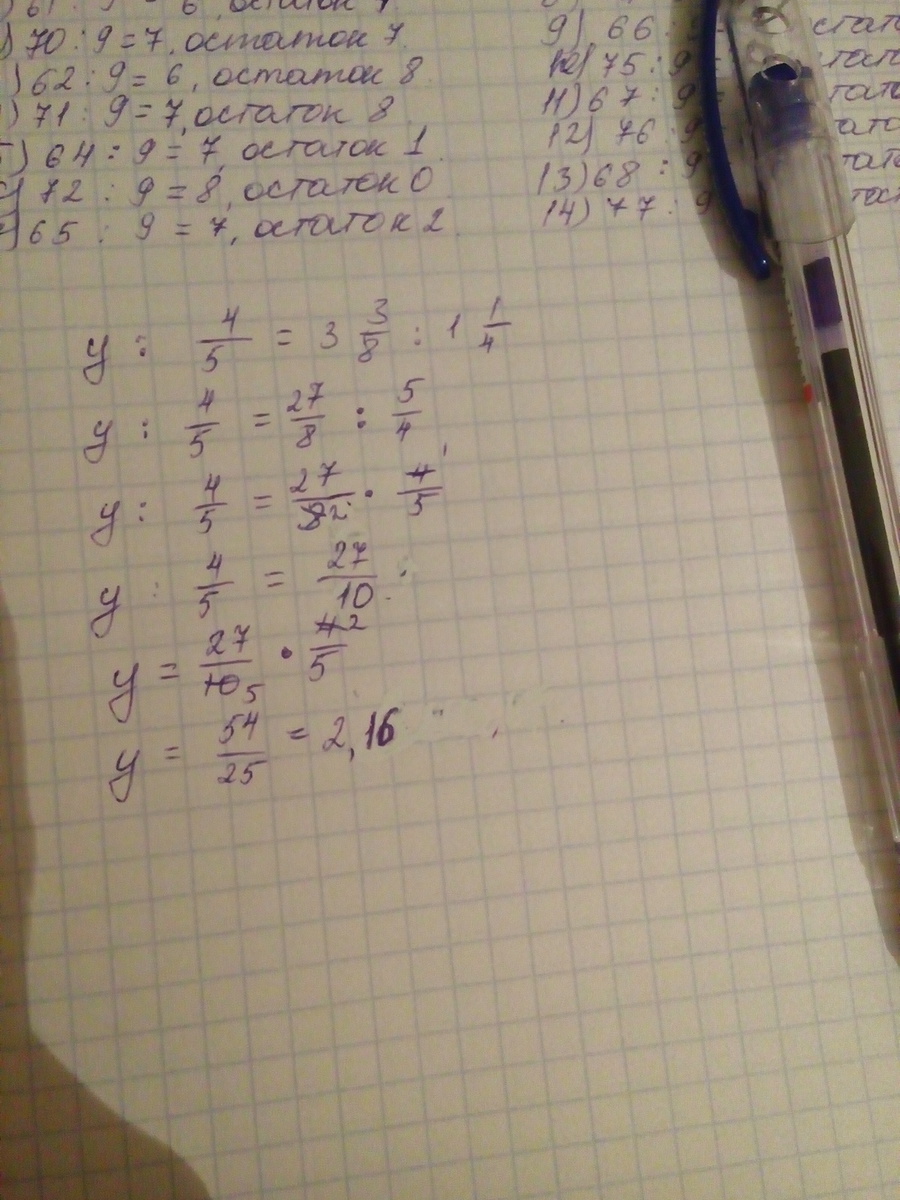 61 : 9 = 6, остаток 7
) 70 : 9 = 7, остаток 7
) 62 : 9 = 6, остаток 8
) 71 : 9 = 7, остаток 8
5) 64 : 9 = 7, остаток 1
) 72 : 9 = 8, остаток 0
) 65 : 9 = 7, остаток 2
9) 66 :
10) 75 : 9
11) 67 : 9
12) 76 : 9
13) 68 : 9
14) 77 : 9
y : 4/5 = 3 3/8 : 1 1/4
y : 4/5 = 27/8 : 5/4
y : 4/5 = 27/8 2 · 4/5 1
y : 4/5 = 27/10
y = 27/10 5 · 4 2/5
y = 54/25 = 2,16